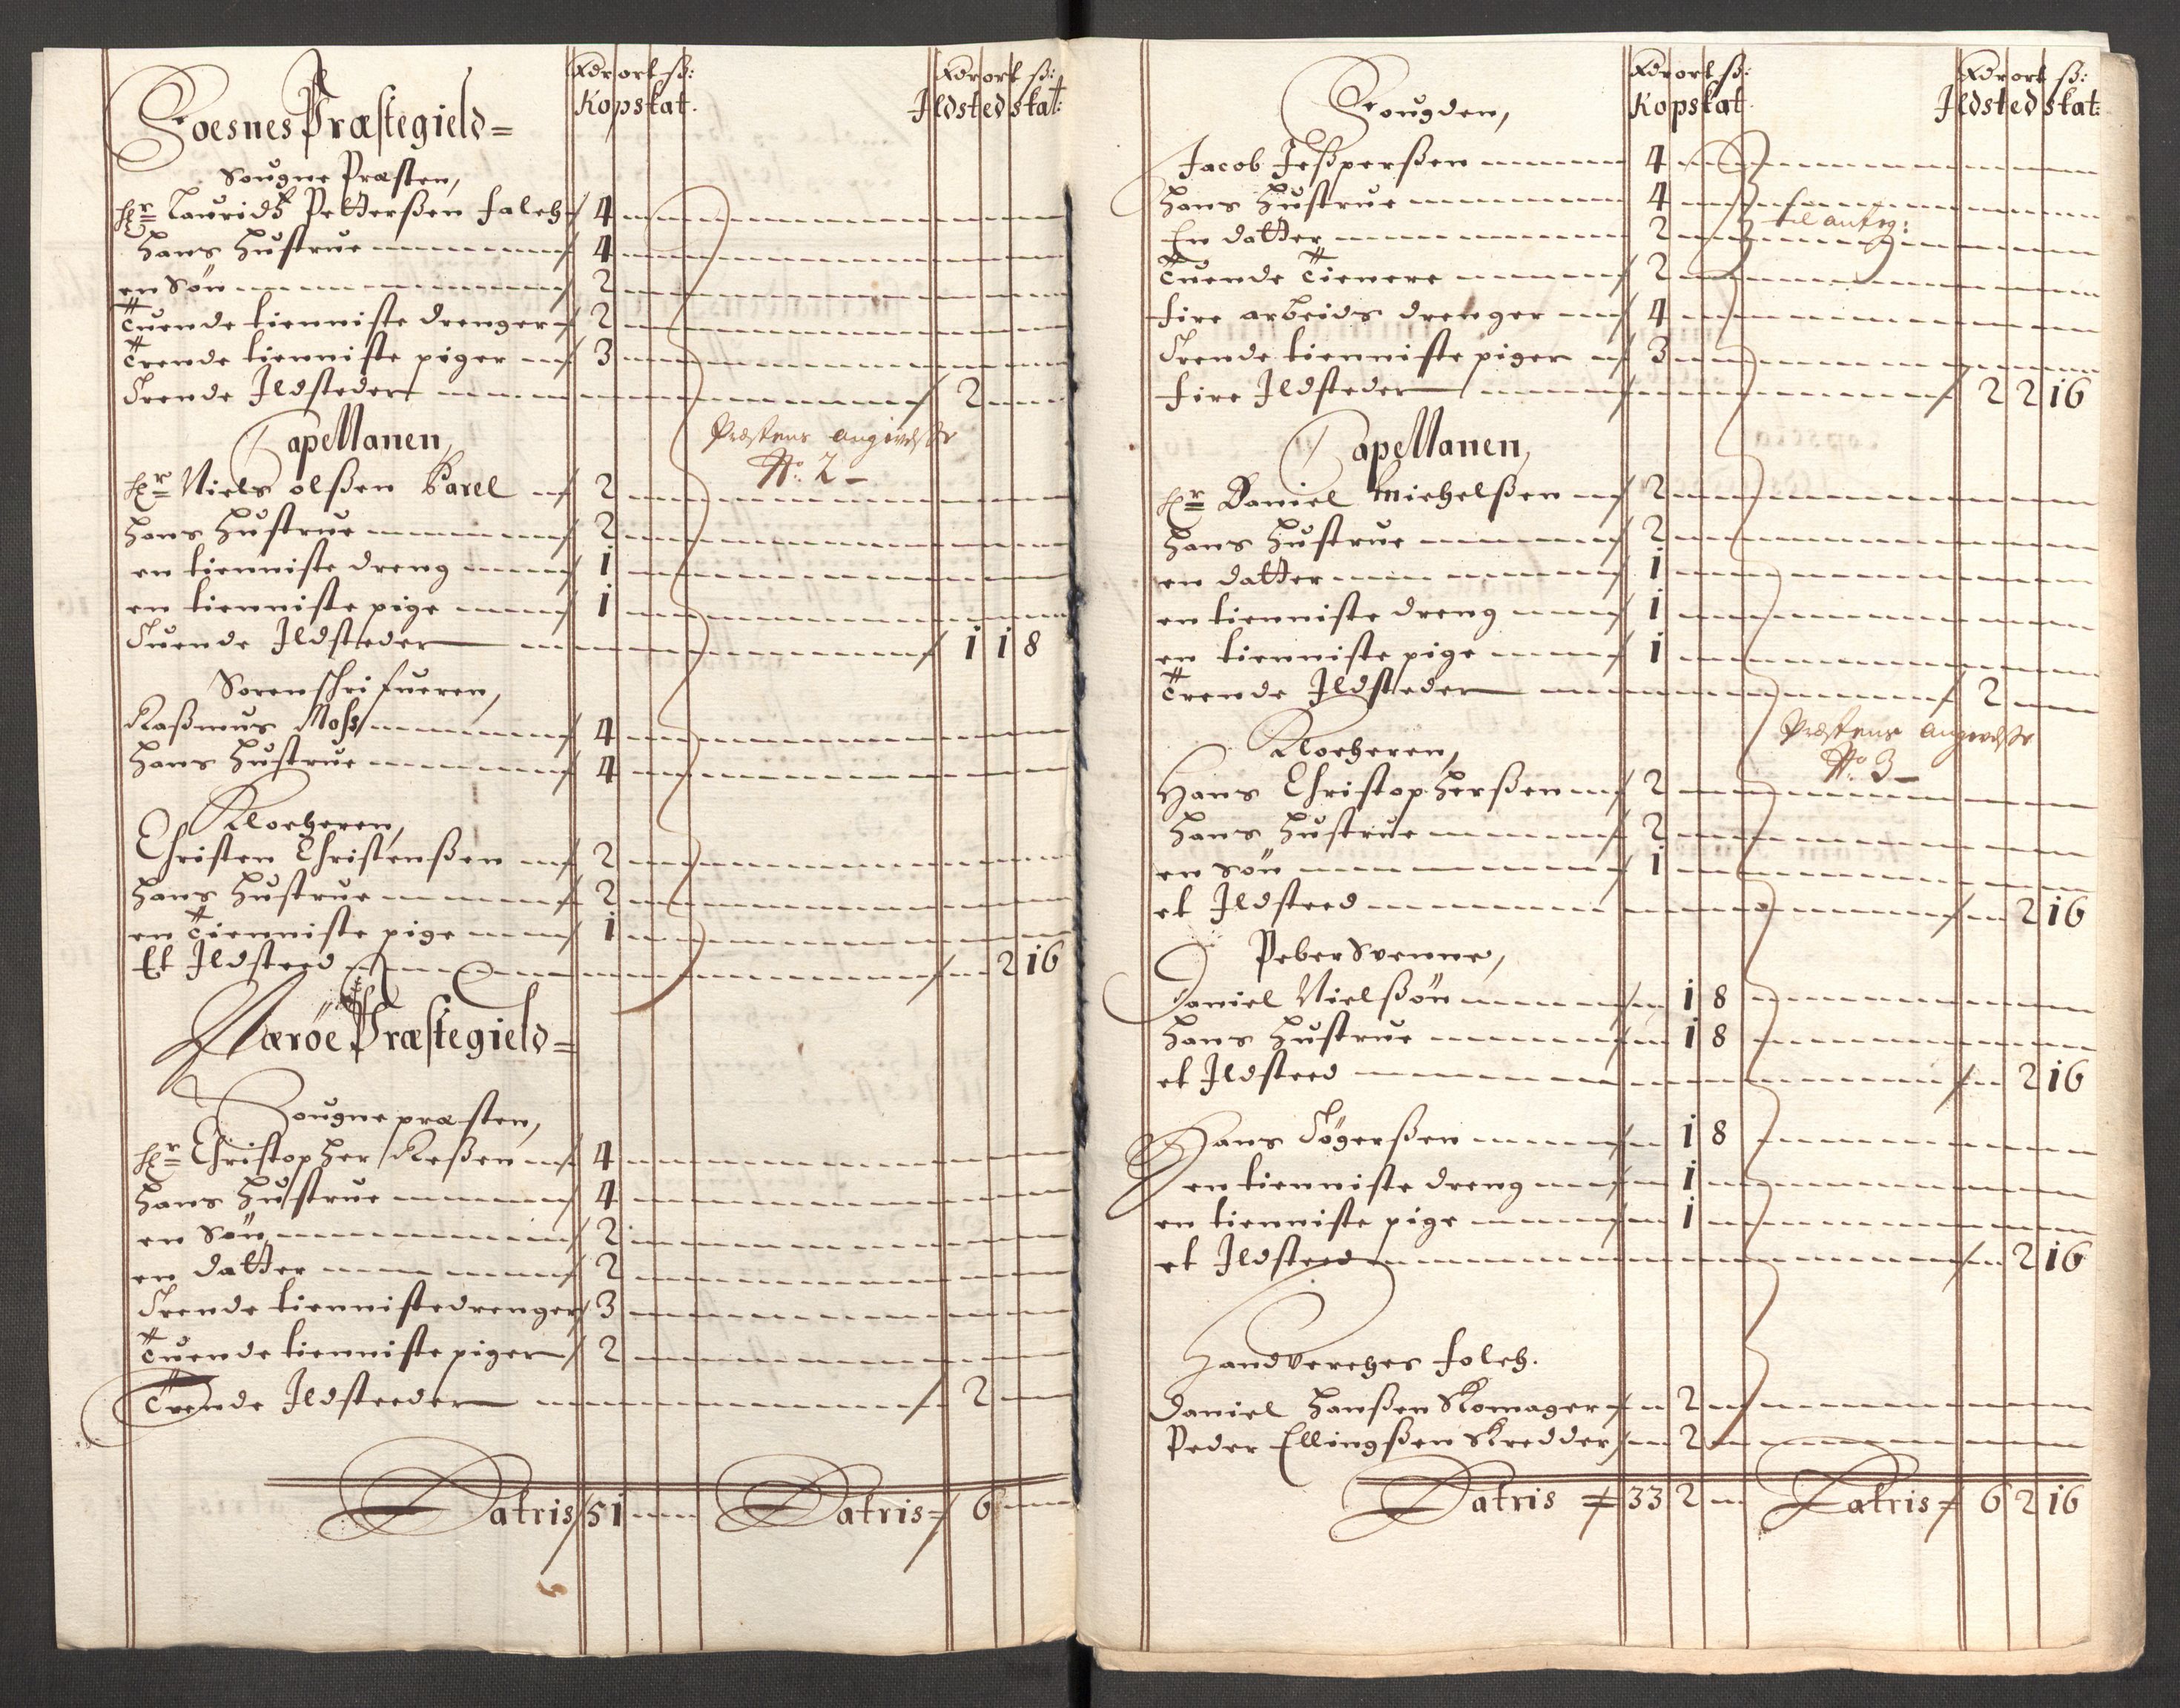 Rdr ort ss: Rdr ort ss:
Kopskat. Ildsted skat:
Foesnes Præstegield=
Sougne Præsten,
Hr Laurids Pettersßen Falch 4
Hans Hustrue 4
en Søn 2
Tuende tienniste drenger 2
Trende tienniste piger 3
Trende Ildsteder 2
Capellanen,
Præstens angivelse
No. 2
Hr Niels olßen Parel 2
Hans Hustrue 2
en tienniste dreng 1
en tienniste pige 1
Tuende Ildsteder 1 1 8
Sorenschrifueren,
Raßmus Moss 4
Hans Hustrue 4
Klocheren,
Christen Christenßen 2
Hans Hustrue 2
en tienniste pige 1
Et Ildsteed 2 16
Nærøe Præstegield=
Sougne præsten,
Hr Christopher Reßen 4
Hans Hustrue 4
en Søn 2
en datter 2
Trende tienniste drenger 3
Tuende tienniste piger 2
Trende Ildsteeder 2
Latris 51 Latris= 6
Rdr ort ss: Rdr ort ss:
Kopskat Ildsted skat:
Fougden,
Jacob Jeßperßen 4
Hans Hustrue 4
En datter 2
Tuende Tienere 2
fire arbeids drenger 4
Trende tienniste piger 3
fire Ildsteder 2 2 16
Capellanen,
Hr Daniel Michelßen 2
Hans Hustrue 2
en datter 1
en tienniste dreng 1
en tienniste pige 1
Trende Ildsteder 2
Præstens angivelse
No. 3
Klocheren,
Hans Christopherßen 2
Hans Hustrue 2
en Søn 1
et Ildsteed 2 16
Peber Svenne,
Daniel Nielßøn 1 8
Hans Hustrue 1 8
et Ildsteed 2 16
Hans Tøgerßen 1 8
en tienniste dreng 1
en tienniste pige 1
et Ildsteed 2 16
Handverches folch.
Daniel Hanßen Skomager 2
Peder Ellingßen Skredder 2
Latris 33 2 Latris= 6 2 16